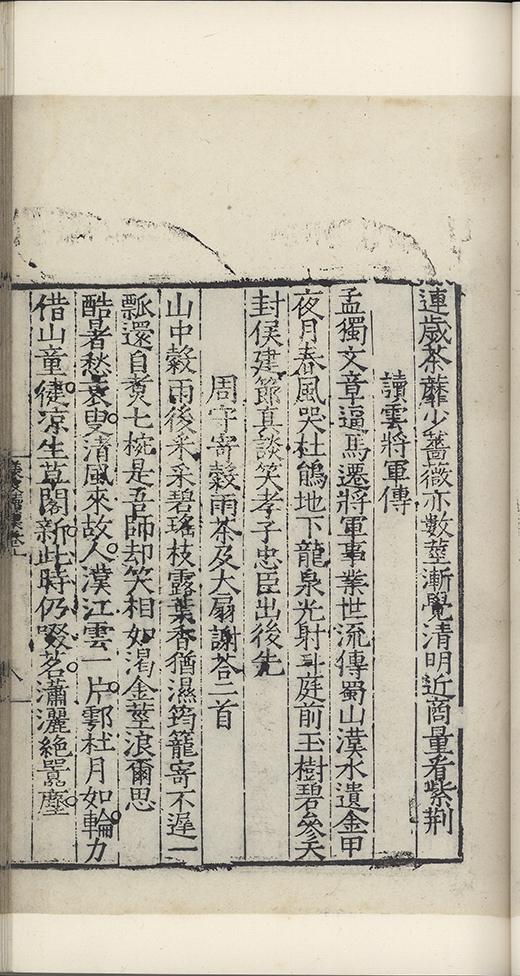 連歲荼蘼少薔薇亦數莖漸覺清明近商量看紫荆
讀雲將軍傳
孟獨文章逼馬遷將軍事業世流傳蜀山漢水遺金甲
夜月春風哭杜鵑地下龍泉光射斗庭前玉樹碧參天
封侯建節真談笑孝子忠臣出後先
周守寄穀雨茶及大扇謝荅二首
山中穀雨後采采碧瑤枝露葉香猶濕筠籠寄不遲一
瓢還自煑七椀是吾師却笑相如渴金莖浪爾思
酷暑愁衰叟清風來故人漢江雲一片鄠杜月如輪力
借山童健凉生草閣新此時仍啜茗瀟灑絶囂塵